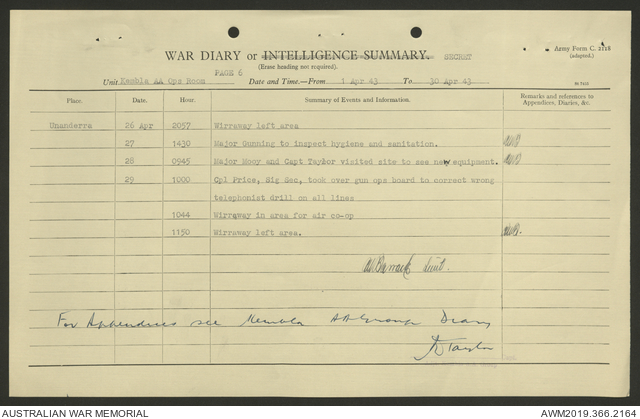 Army Form C. 2118
(adapted.)
WAR DIARY or INTELLIGENCE SUMMARY. SECRET
(Erase heading not required).
PAGE 6
Unit Kembla AA Ops Room Date and Time.—From 1 Apr 43 To 30 Apr 43
Place. Date. Hour. Summary of Events and Information. Remarks and references to Appendices, Diaries, &c.
Unanderra 26 Apr 2057 Wirraway left area
27 1430 Major Gunning to inspect hygiene and sanitation.
28 0945 Major Mooy and Capt Taylor visited site to see new equipment.
29 1000 Cpl Price, Sig Sec, took over gun ops board to correct wrong
telephonist drill on all lines
1044 Wirraway in area for air co-op
1150 Wirraway left area.
Lieut.
For Appendices see Kembla AA Group Diary
Taylor
AUSTRALIAN WAR MEMORIAL
AWM2019.366.2164